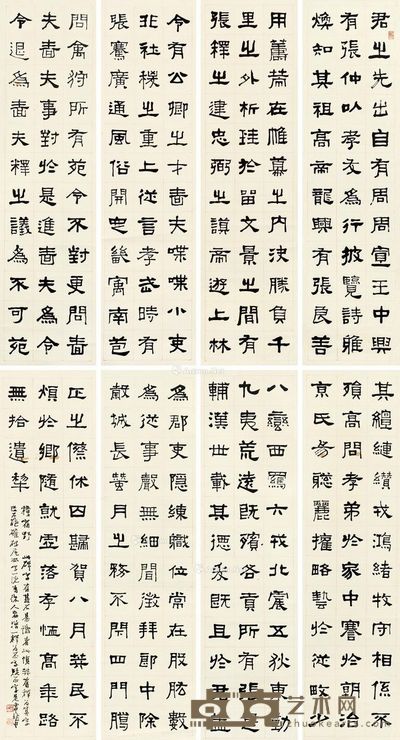 君之先出自有周周宣王中興
有張仲以孝友為行披覽詩雅
煥知其祖高帝龍興有張良善
用籌策在帷幕之內決勝負千
里之外析珪於留文景之間有
張釋之建忠弼之謨帝遊上林
令有公卿之才嗇夫喋喋小吏
非社稷之重上從言孝武時有
張騫廣通風俗開定畿寓南苞
問禽狩所有苑令不對更問嗇
夫嗇夫事對於是進嗇夫為令
令退為嗇夫釋之議為不可苑
其纘縺戎鴻緒牧守相係不
殞高問孝弟於家中謇於朝治
京氏易聰麗權略藝於從畋少
八蠻西羈六戎北震五狄東勤
九夷荒遠既殯各貢所有張是
輔漢世載其德爰既且於君蓋
為郡吏隱練職位常在股肱數
為從事聲無細聞徵拜郎中除
穀城長蠶月之務不閉四門臘
正之僚休囚歸賀八月筭民不
煩於鄉隨就虛落存恤高年路
無拾遺犁